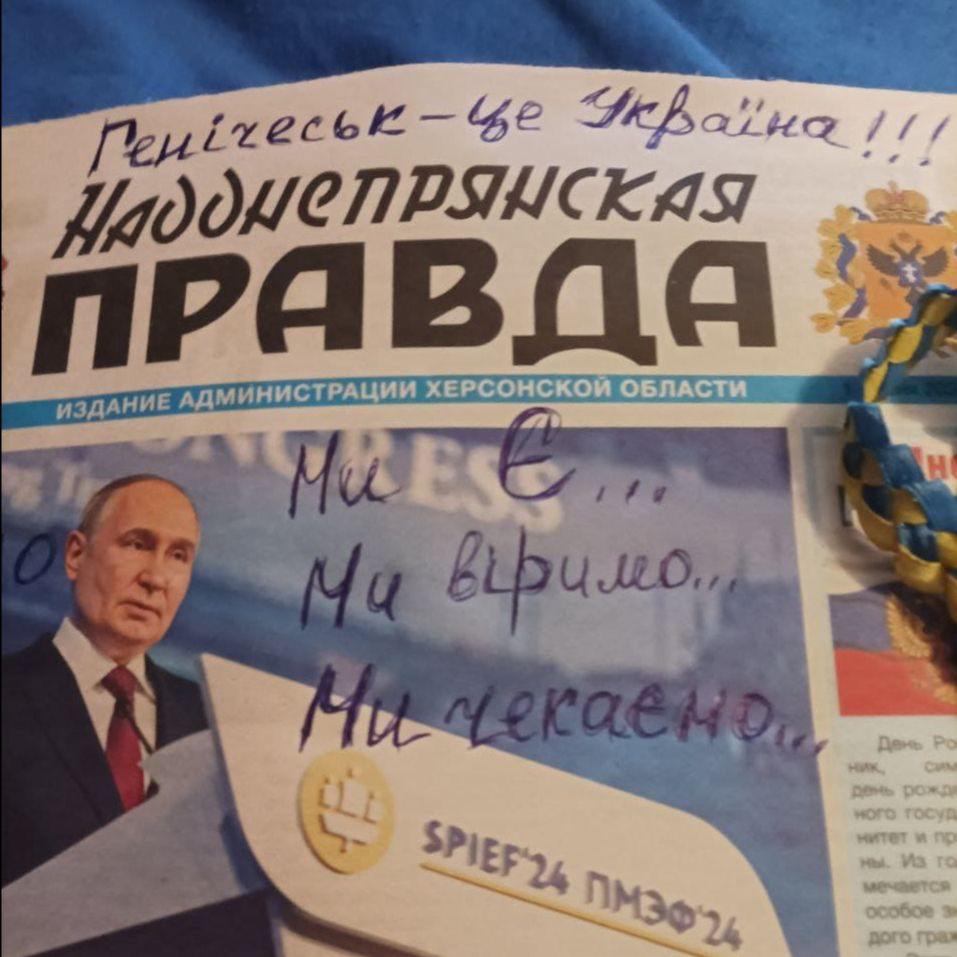 Генічеськ – це Україна!!!
Надднепрянская
ПРАВДА
ИЗДАНИЕ АДМИНИСТРАЦИИ ХЕРСОНСКОЙ ОБЛАСТИ
CONGRESS
Ми Є...
Ми віримо...
Ми чекаємо...
SPIEF'24 ПМЭФ'24
День Ро
ник, сим
день рожд
ного госуд
нитет и пр
ны. Из го
мечается
особое зн
дого граж